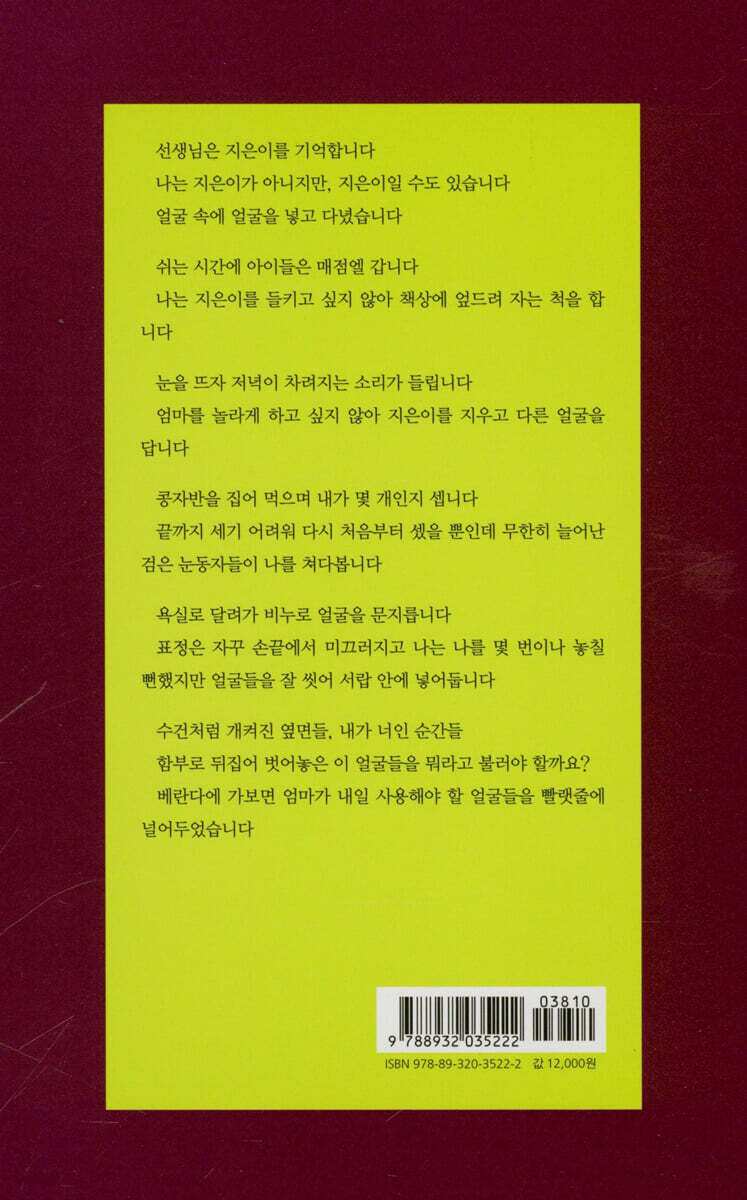 선생님은 지은이를 기억합니다
나는 지은이가 아니지만, 지은이일 수도 있습니다
얼굴 속에 얼굴을 넣고 다녔습니다
쉬는 시간에 아이들은 매점엘 갑니다
나는 지은이를 들키고 싶지 않아 책상에 엎드려 자는 척을 합
니다
눈을 뜨자 저녁이 차려지는 소리가 들립니다
엄마를 놀라게 하고 싶지 않아 지은이를 지우고 다른 얼굴을
답니다
콩자반을 집어 먹으며 내가 몇 개인지 셉니다
끝까지 세기 어려워 다시 처음부터 셌을 뿐인데 무한히 늘어난
검은 눈동자들이 나를 쳐다봅니다
욕실로 달려가 비누로 얼굴을 문지릅니다
표정은 자꾸 손끝에서 미끄러지고 나는 나를 몇 번이나 놓칠
뻔했지만 얼굴들을 잘 씻어 서랍 안에 넣어둡니다
수건처럼 개켜진 옆면들, 내가 너인 순간들
함부로 뒤집어 벗어놓은 이 얼굴들을 뭐라고 불러야 할까요?
베란다에 가보면 엄마가 내일 사용해야 할 얼굴들을 빨랫줄에
널어두었습니다
03810
9 788932 035222
ISBN 978-89-320-3522-2 값 12,000원